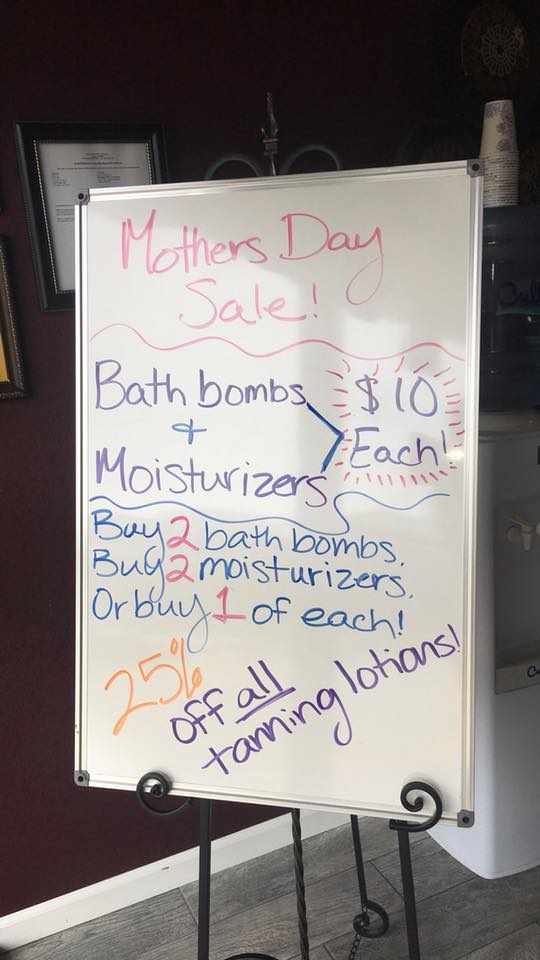 Mothers Day
Sale!
Bath bombs
+
Moisturizers
$10
Each!
Buy 2 bath bombs.
Buy 2 moisturizers.
Or buy 1 of each!
25%
off all
tanning lotions!